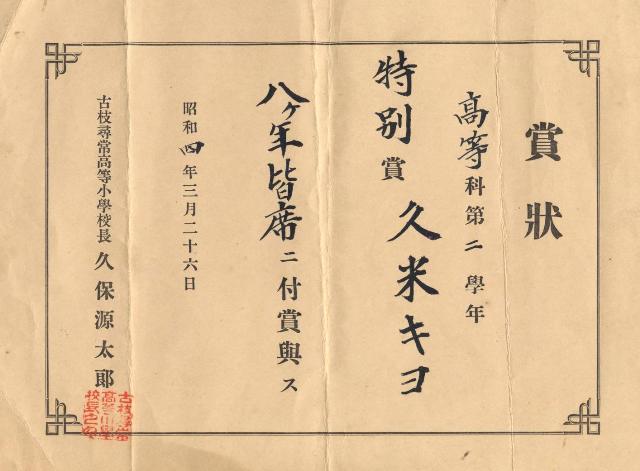 賞狀
高等科第二學年
特別賞 久米キヨ
八ヶ年皆席ニ付賞與ス
昭和四年三月二十六日
古枝尋常高等小學校長 久保源太郎